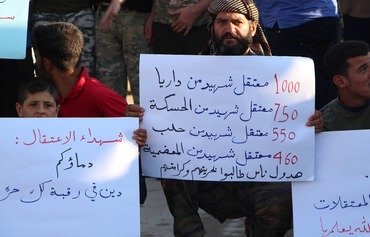 1000 معتقل شهيد من داريا
750 معتقل شهيد من الحسكة
550 معتقل شهيد من حلب
460 معتقل شهيد من المعضمية
هدول ناس طالبوا بحريتهم وكرامتهم
شهداء الاعتقال :
دماؤكم
دين في رقبة كل حرّ
المعتقلات